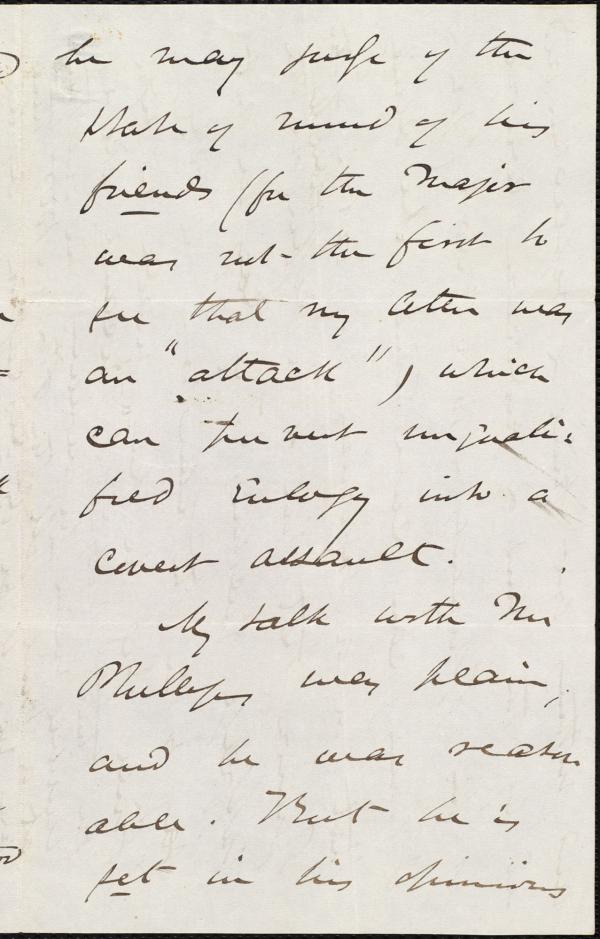 he may judge of the
state of mind of his
friends (for the Major
was not the first to
see that my letter was
an "attack") which
can pervert unquali-
fied Eulogy into a
covert assault.
My talk with Mr
Phillips was plain,
and he was reason
able. But he is
set in his opinions